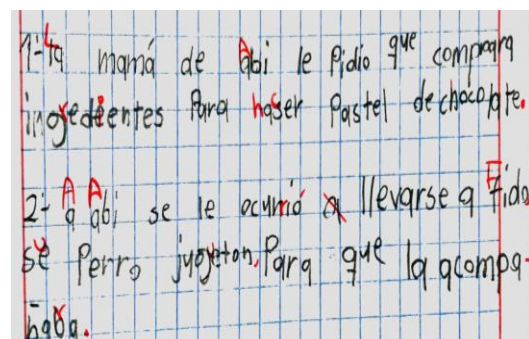 1-La mamá de Abi le Pidio que comprara
ingredientes Para haser Pastel de chocolate.
2- A Abi se le ocurrió a llevarse a Fido
su Perro jugeton, Para que la acompa-
ñara.